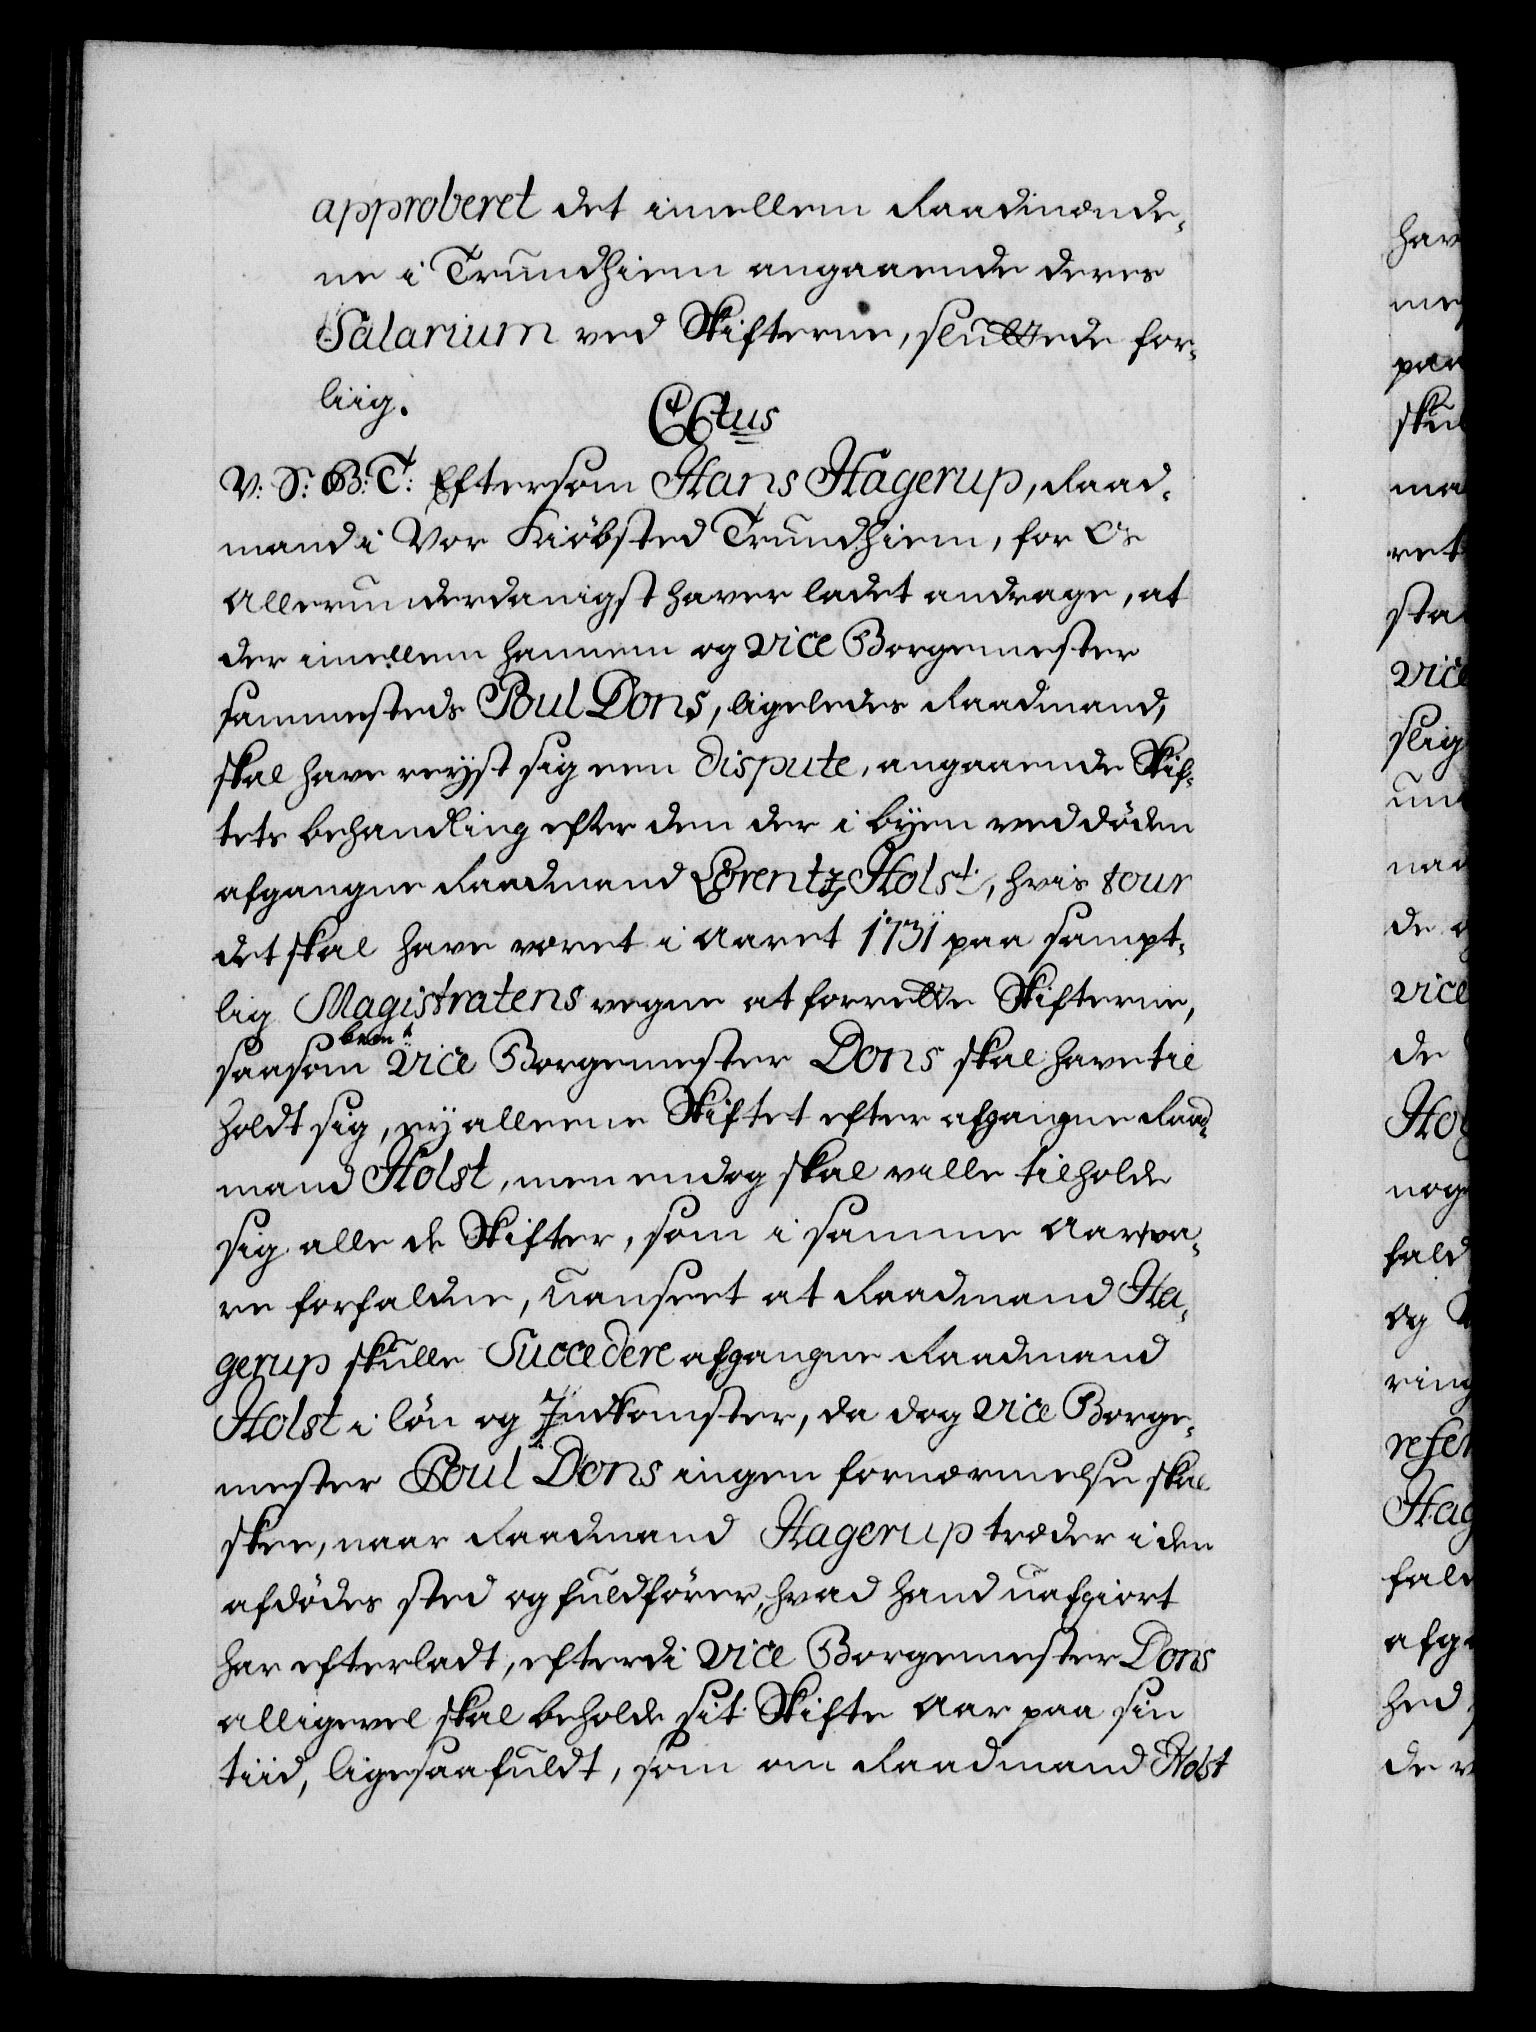 approberet det imellem Raadmænde-
ne i Trundhiem angaaende deres
Salarium ved Skifterne, sluttede for-
liig.
C6tus
V: S: G: T: Eftersom Hans Hagerup, Raad-
mand i Vor Kiöbsted Trundhiem, for Os
Allerunderdanigst haver ladet andrage, at
der imellem hannem og Vice Borgemester
sammesteds Poul Dons, ligeledes Raadmand,
skal have reyst sig een dispute, angaaende Skif-
tets behandling efter den der i byen ved döden
afgangne Raadmand Lorentz Holst, hvis tour
det skal have været i Aaret 1731 paa sampt-
lig Magistratens vegne at forrette Skifterne,
saasom bemte Vice Borgemester Dons skal have til
holdt sig, ey alleene Skiftet efter afgangne Raad-
mand Holst, men endog skal ville tilholde
sig alle de Skifter, som i samme Aar va-
re forfaldne, uanseet at Raadmand Ha-
gerup skulle Succedere afgangne Raadmand
Holst i lön og Indkomster, da dog Vice Borge-
mester Poul Dons ingen fornærmelse skal
skee, naar Raadmand Hagerup træder i den
afdödes sted og fuldförer, hvad hand uafgiort
har efterladt, efterdi Vice Borgemester Dons
alligevel skal beholde sit Skifte Aar paa sin
tiid, ligesaafuldt, som om Raadmand Holst